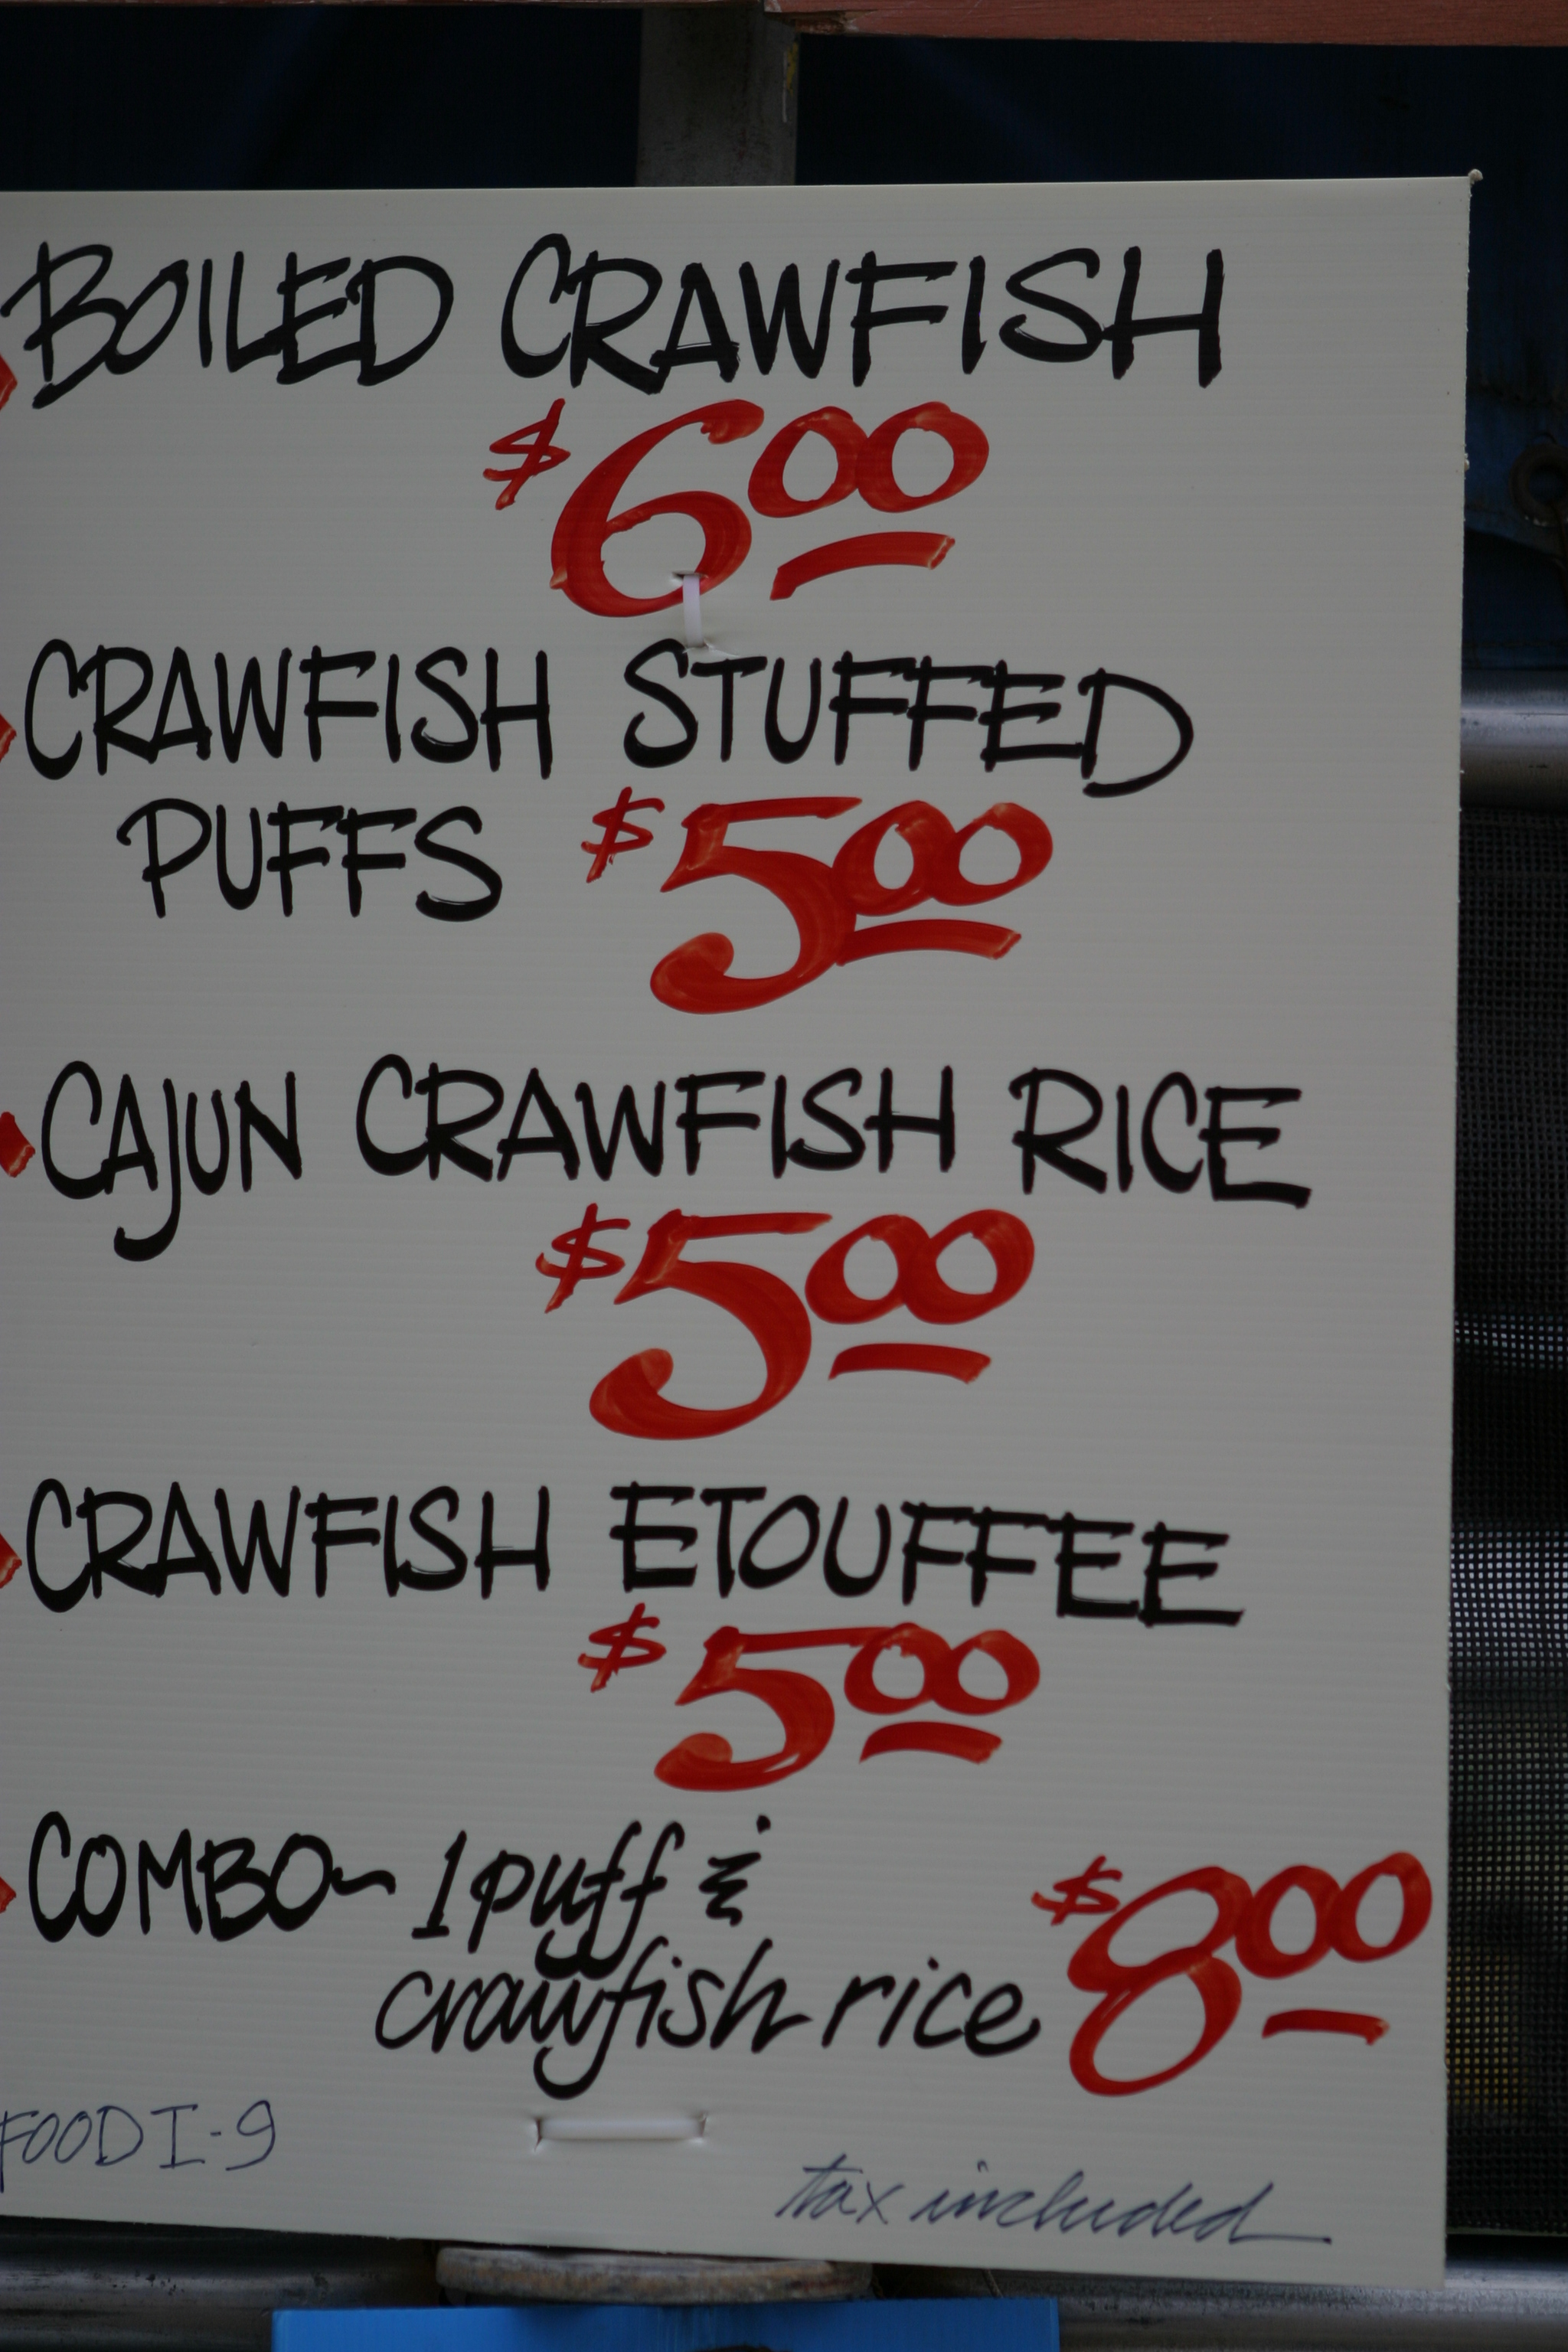 BOILED CRAWFISH
$6.00
CRAWFISH STUFFED
PUFFS $5.00
CAJUN CRAWFISH RICE
$5.00
CRAWFISH ETOUFFEE
$5.00
COMBO~ 1 puff &
crawfish rice $8.00
FOOD I-9
tax included